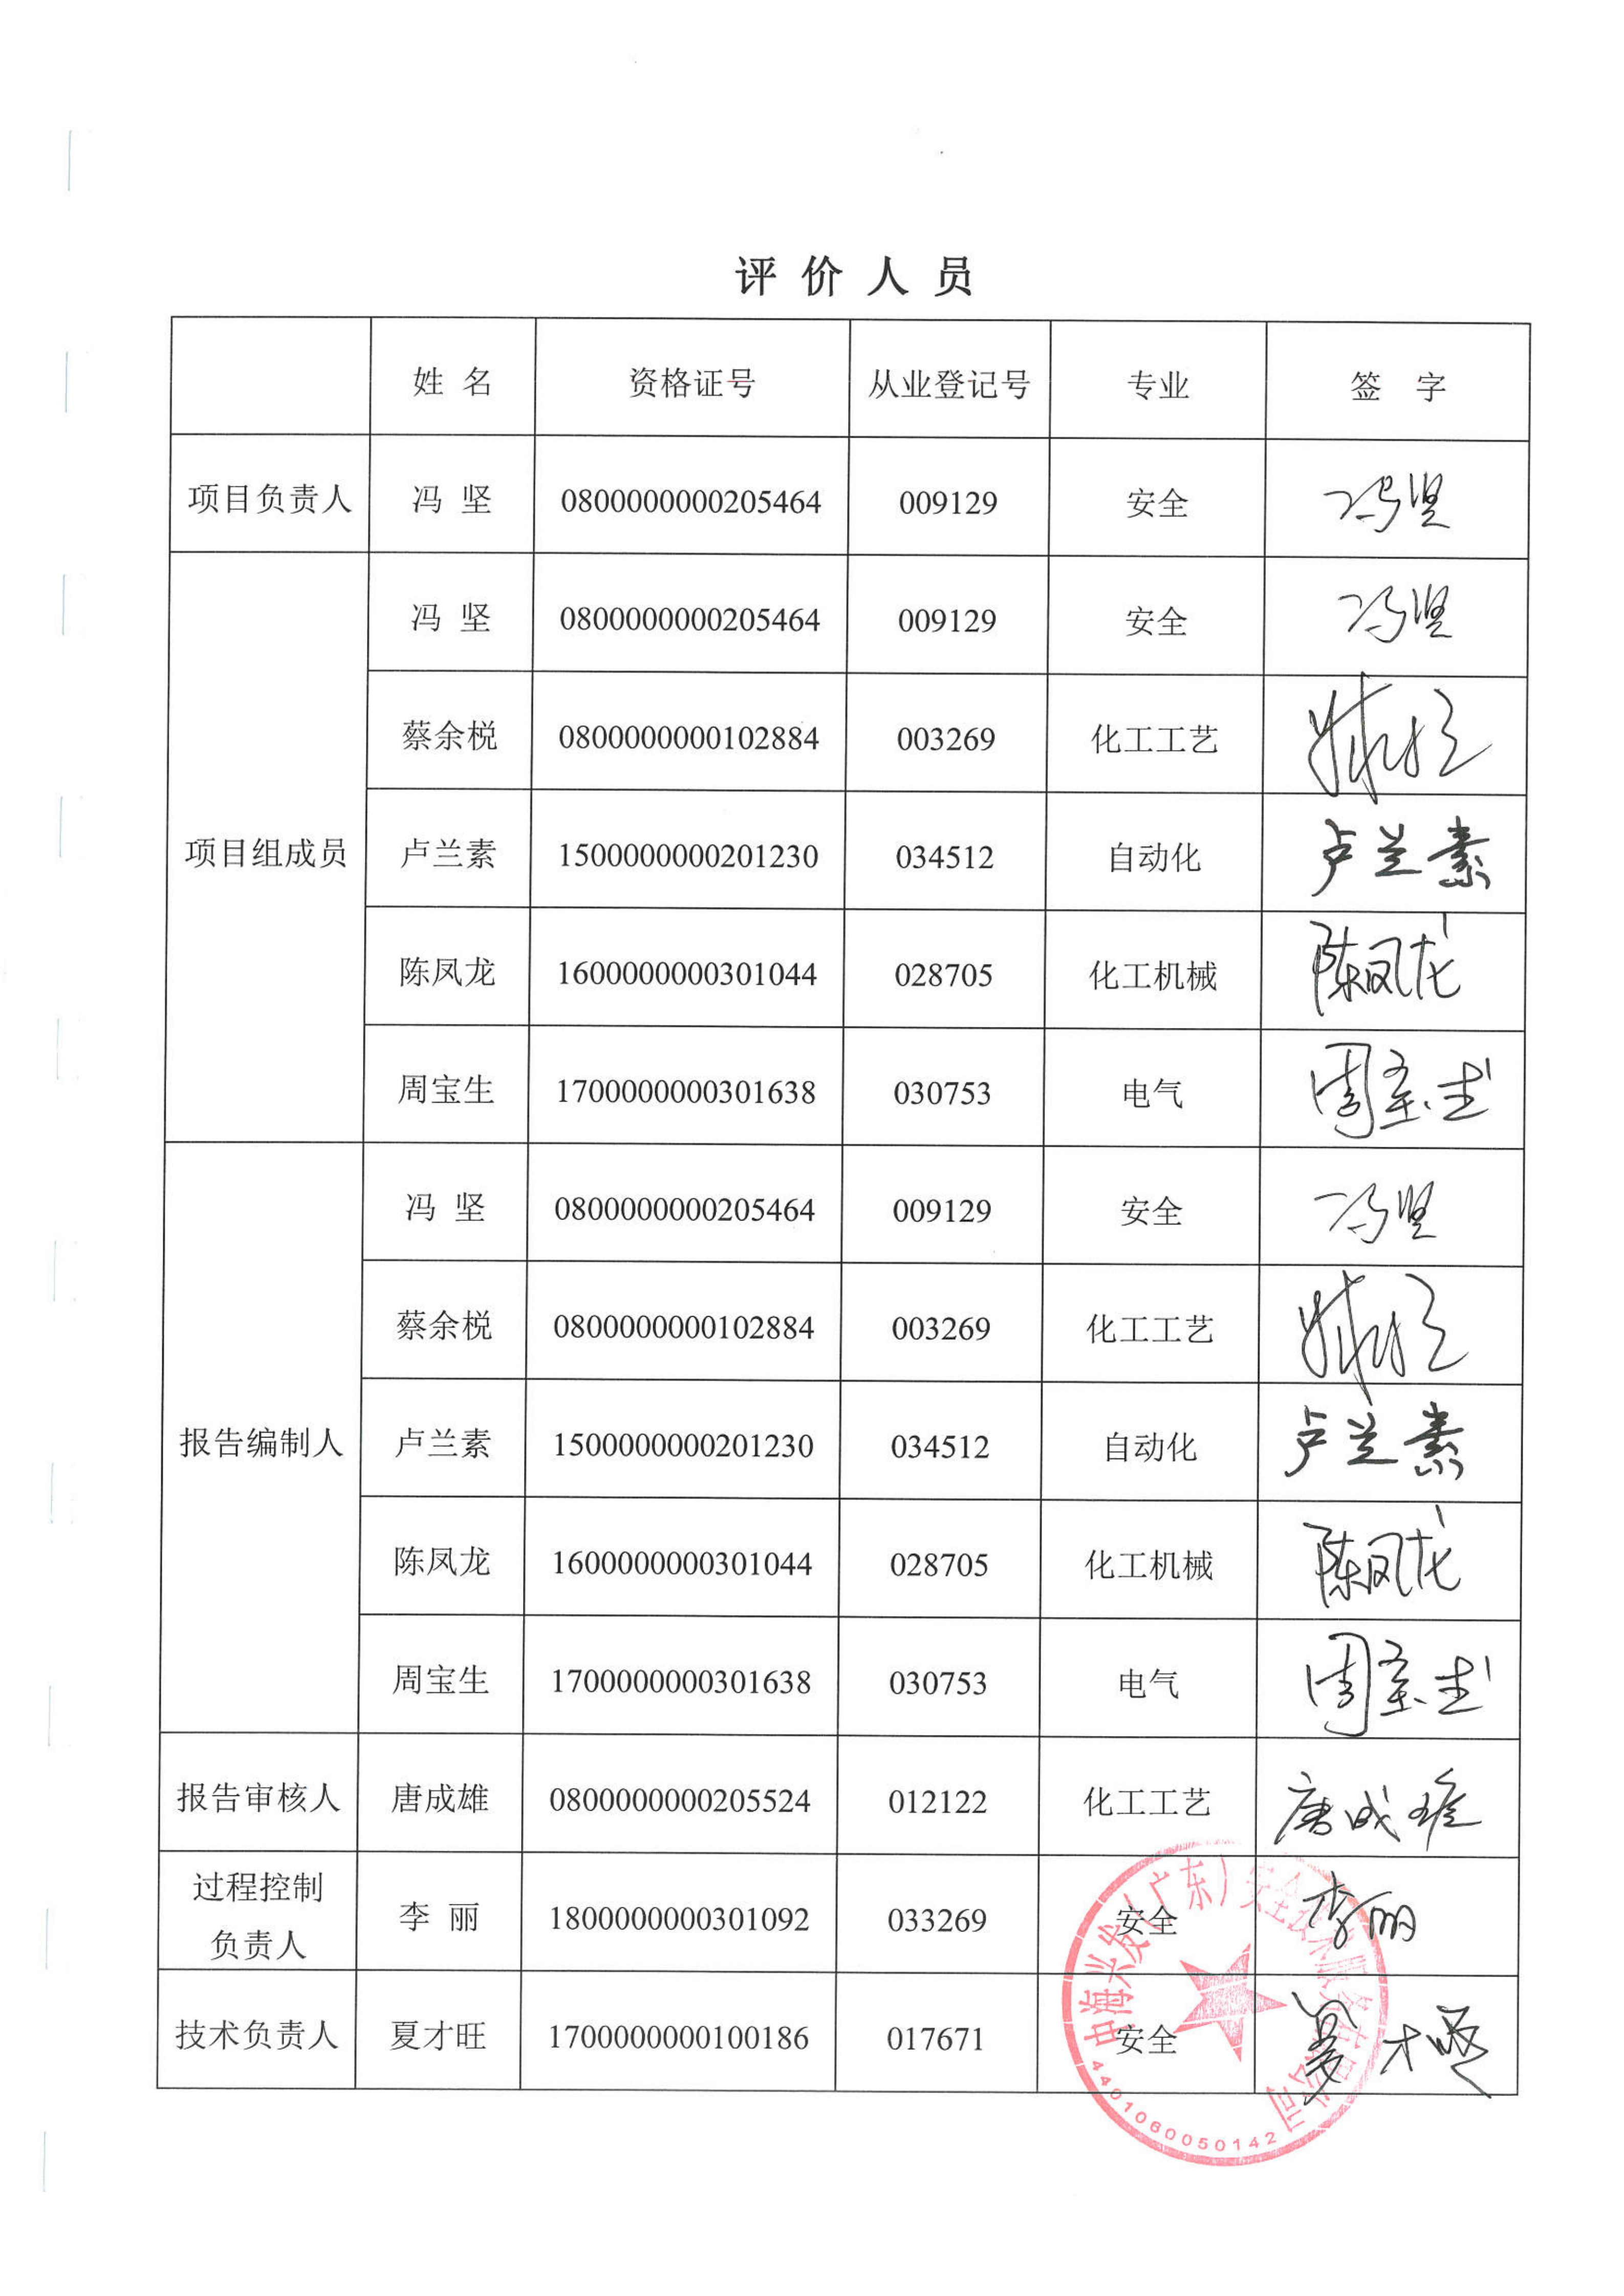 评价人员
姓 名 资格证号 从业登记号 专业 签 字
项目负责人 冯 坚 0800000000205464 009129 安全 冯坚
项目组成员 冯 坚 0800000000205464 009129 安全 冯坚
蔡余棁 0800000000102884 003269 化工工艺
卢兰素 1500000000201230 034512 自动化 卢兰素
陈凤龙 1600000000301044 028705 化工机械 陈凤龙
周宝生 1700000000301638 030753 电气 周宝生
报告编制人 冯 坚 0800000000205464 009129 安全 冯坚
蔡余棁 0800000000102884 003269 化工工艺
卢兰素 1500000000201230 034512 自动化 卢兰素
陈凤龙 1600000000301044 028705 化工机械 陈凤龙
周宝生 1700000000301638 030753 电气 周宝生
报告审核人 唐成雄 0800000000205524 012122 化工工艺 唐成雄
过程控制
负责人 李 丽 1800000000301092 033269 安全 李丽
技术负责人 夏才旺 1700000000100186 017671 安全 夏才旺
中海兴发（广东）安全技术服务有限公司
4401060050142